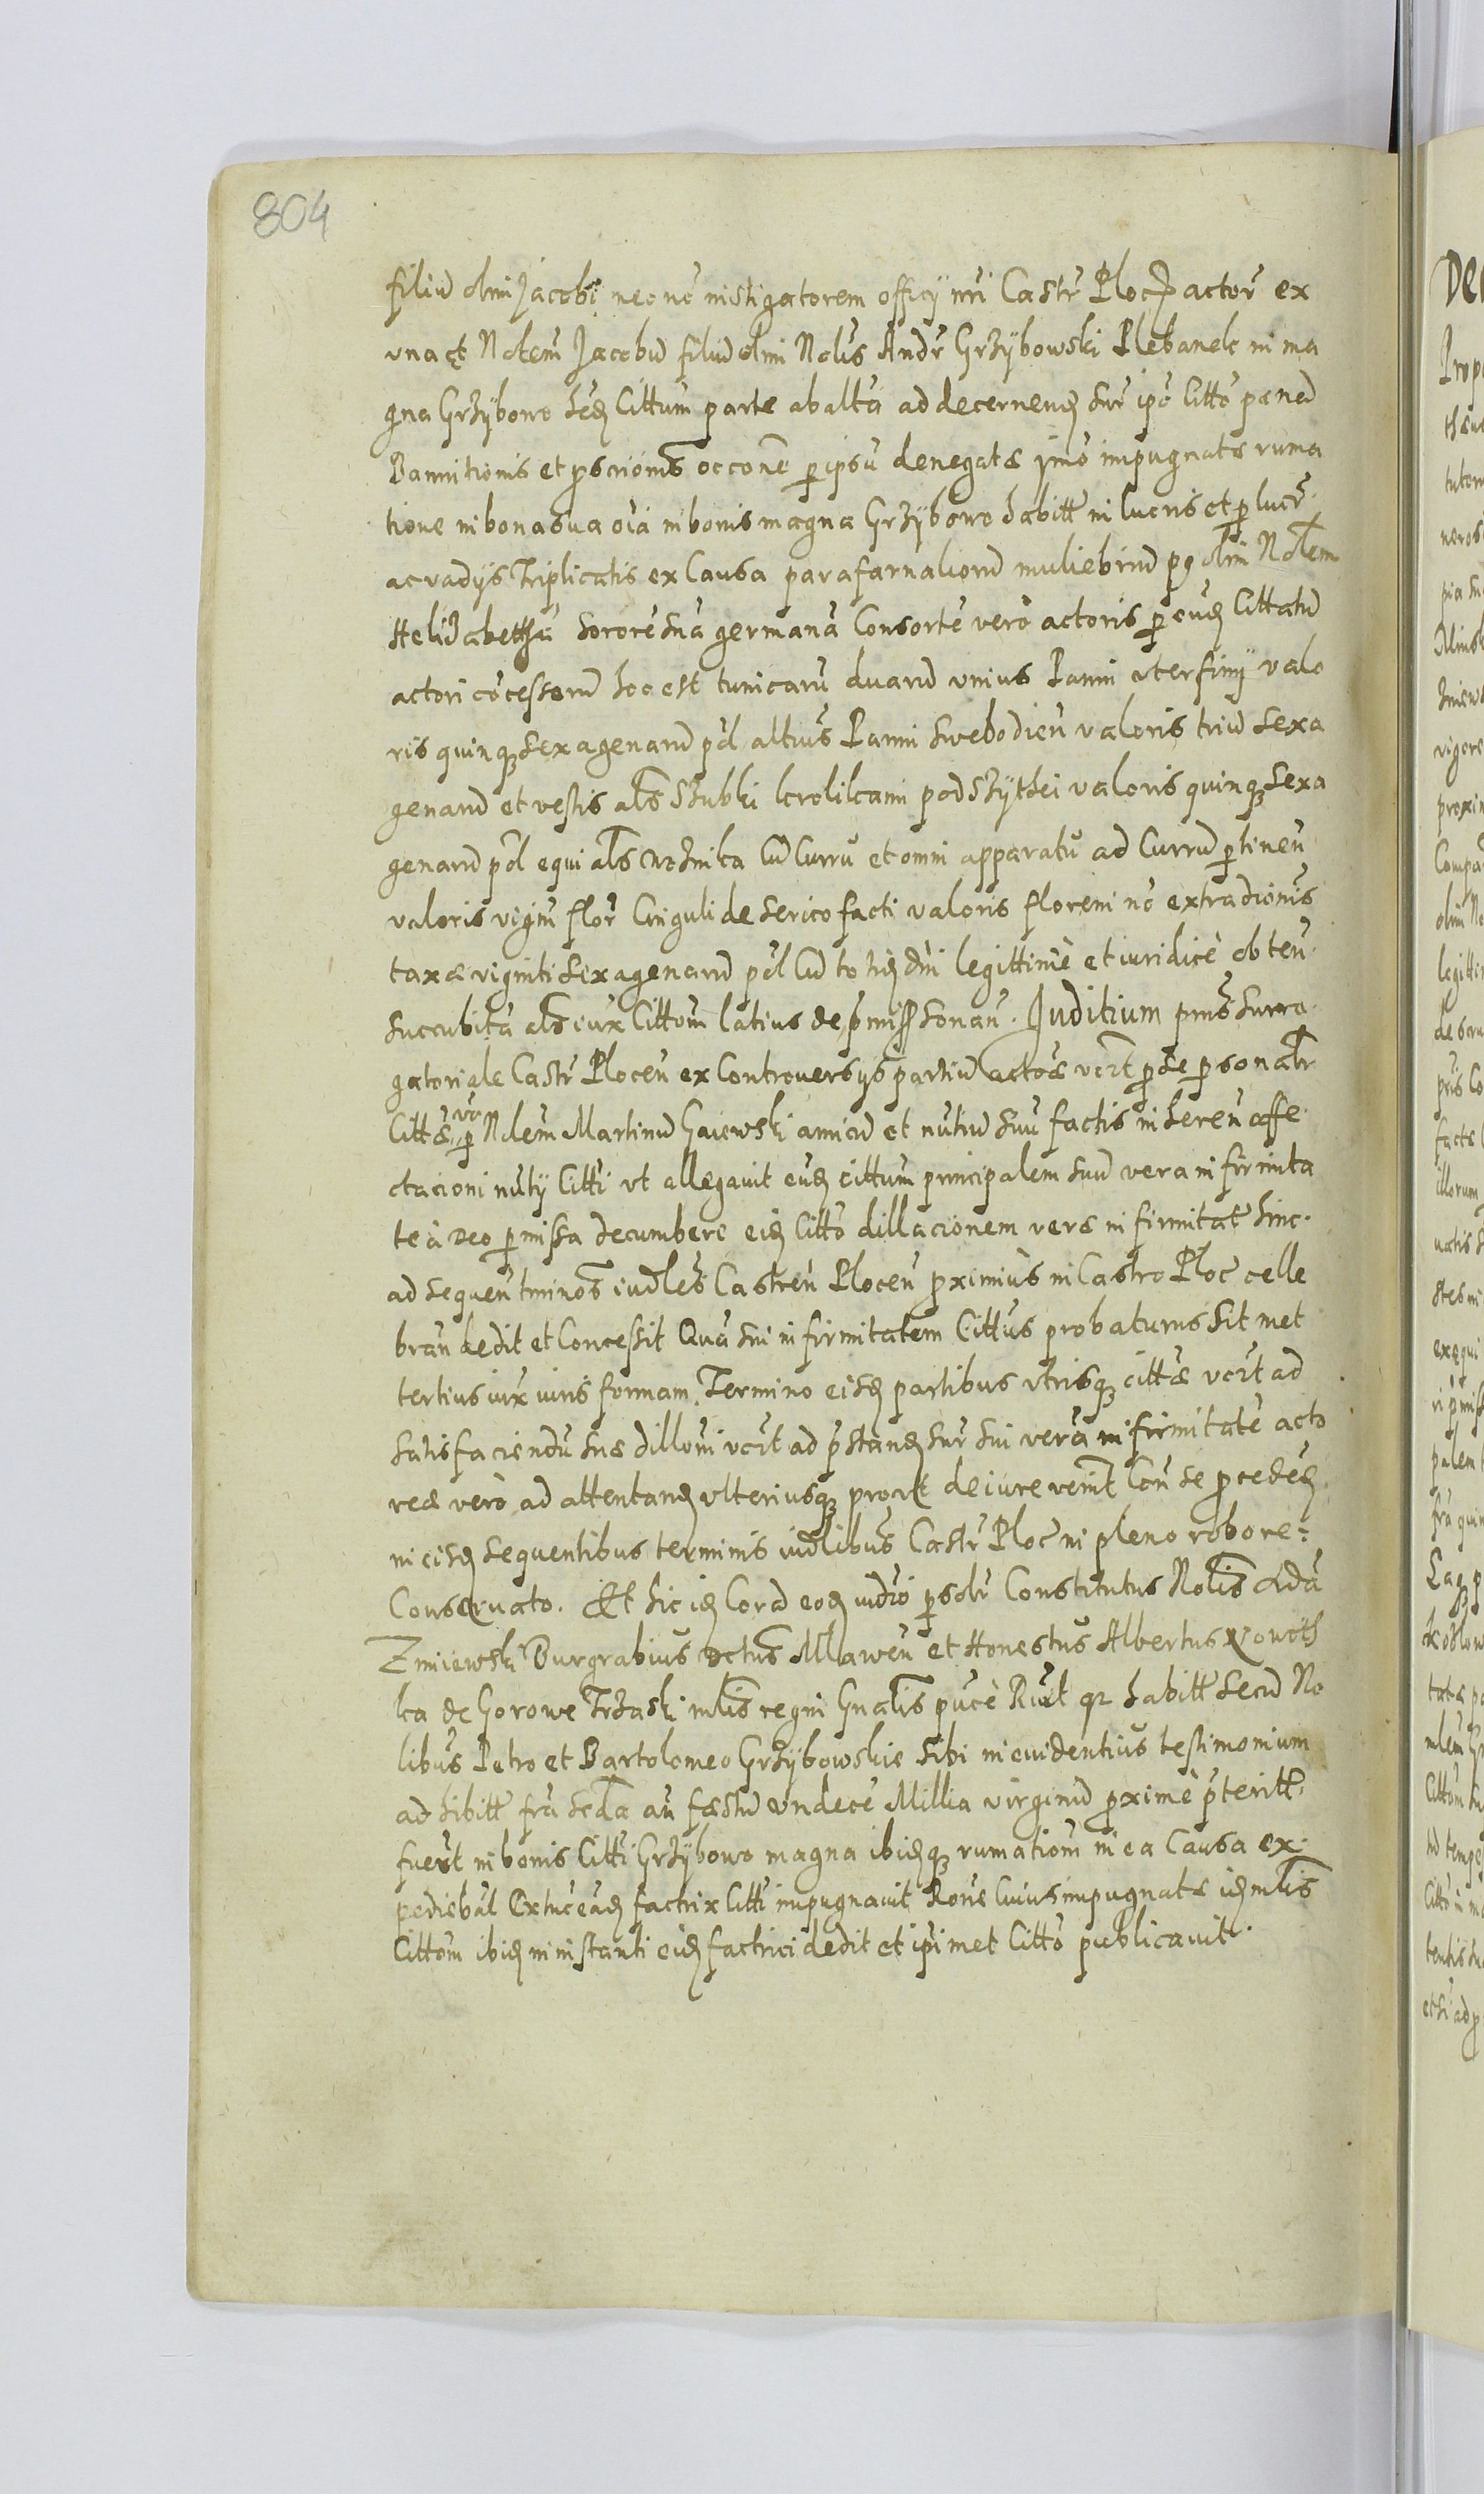 804
filiu olmi Jacobi nec nō instigatorem officy nri Castr Ploc actor ex
vna et Nolem Jacobu filiu olmi Nolis Andr Grzÿbowski Plebanek in ma
gna Grzÿbowo hēd Cittum parte ab altā ad decernend sur ipō Citto pœnā
Bannitionis et proscrioms occone p ipsu denegatæ ymo impugnatæ ruma
tione in bona sua oia in bonis magna Grzÿbowo habitt in lucris et p lucr
ac vadys Triplicatis ex Causa parafarnaliorū muliebriū pg olm Nolem
Helizabettha sororē suā germanā Consortē vero actoris p eund Cittatū
actori cōcessorū hoc est tunicarū duarū vnius Panni vterfinÿ valo
ris quinq sexagenarū pol altius Panni Swebodien valoris triū sexa
genarū et vestis als Szubki krolikami podszÿthei valoris quinq sexa
genarū pol equi als woznika Cū Curru et omni apparatu ad Currū ptinen
valoris vigin flor Cinguli de serico facti valoris floreni nō extradionis
taxæ viginti sexagenarū pol Cū to hid dni legittimē et iuridicē obten
succubita als iux Cittom latius de pmiss sonan. Juditium pns surro
gatoriale Castr Plocen ex Controuersys partiū actoæ vert p se personalr
Cittæ vo p Nlem Martinū Gaiewski amicū et nutiū suu factis in heren affe
ctacioni nuty Citti vt allegauit eund cittum principalem suū vera infirmita
te à Deo pmissa decumbere eid Citto dillacionem veræ infirmitat hinc
ad sequen tminos iudles Castren Plocen proximius in Castro Ploc celle
bran dedit et Concessit Quā sui infirmitatem Cittus probaturus sit met
tertius iux iuris formam Termino eisd partibus vtrisq cittæ vert ad
satisfaciendu suæ dilloni vert ad pstand sur sui verā infirmitatē acto
reæ vero ad attentand vlteriusq prout de iure venit Con se proceded
in eisd sequentibus terminis iudlibus Castr Ploc in pleno robore
Conseruato. Et hic id Corā eod iudio psolr Constitutus Nolis Adā
Zmiewski Burgrabius octus Mlawen et Honestus Albertus Woncth
ka de Gorowe Trzaski mlis regni Gnalis pucē Ruit qz habitt secū No
libus Petro et Bartolomeo Grzÿbowskie sibi in euidentius testimonium
adhibitt fra secda an fæstū vndecē Millia virginū proximē pteritt
fuert in bonis Citti Grzÿbowo magna ibidq rumationi in ea Causa ex
pediebāt Extuc ead factrix Citti impugnauit Rone Cuius impugnatæ id mlis
Cittom ibid in instanti eid factrici dedit et ipimet Citto publicauit.